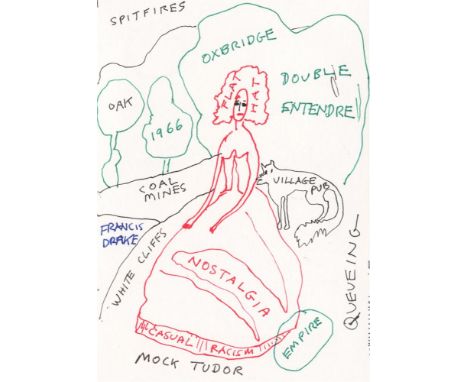 SPITFIRES
OXBRIDGE
DOUBLE
ENTENDRE
FLAT
HAT
OAK
1966
COAL
MINES
VILLAGE
PUB
FRANCIS
DRAKE
WHITE CLIFFS
NOSTALGIA
QUEUEING
CASUAL RACISM
EMPIRE
MOCK TUDOR